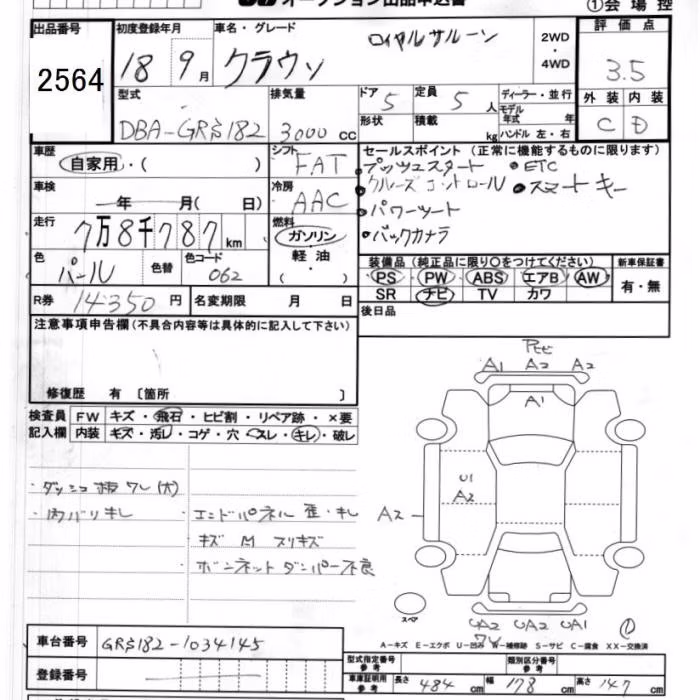 オークション出品申込書
①会場控
出品番号 初度登録年月 車名・グレード 評価点
2564 18 9月 クラウン ロイヤルサルーン 2WD・4WD 3.5
型式 排気量 ドア 5 定員 5人 ディーラー・並行 外装 内装
DBA-GRS182 3000cc 形状 積載 kg モデル年式 年 ハンドル 左・右 C D
車歴 自家用・( ) シフト FAT セールスポイント(正常に機能するものに限ります)
プッシュスタート ・ETC
車検 年 月( 日) 冷房 AAC クルーズコントロール ・スマートキー
・パワーシート
走行 7万8千787km 燃料 ガソリン・軽油・( ) ・バックカメラ
色 パール 色替 色コード 062 装備品(純正品に限り○をつけてください) 新車保証書
PS PW ABS エアB AW 有・無
R券 14350円 名変期限 月 日 SR ナビ TV カワ
後日品
注意事項申告欄(不具合内容等は具体的に記入して下さい)
修復歴 有〔箇所 〕
検査員記入欄 FW キズ・飛石・ヒビ割・リペア跡・×要
内装 キズ・汚レ・コゲ・穴・スレ・キレ・破レ
A1 A2 A2
A1
U1
A2
A2
・ダッシュ ワレ(大)
・内バリキレ エンドパネル 歪・キレ
キズ M スリキズ
ボンネットダンパー不良
スペア
UA2 UA2 UA1
A-キズ E-エクボ U-凹み W-補修跡 S-サビ C-腐食 XX-交換済
車台番号 GRS182-1034145
登録番号
型式指定番号 参考 類別区分番号 参考
車庫証明用 参考 長さ 484cm 幅 178cm 高さ 147cm